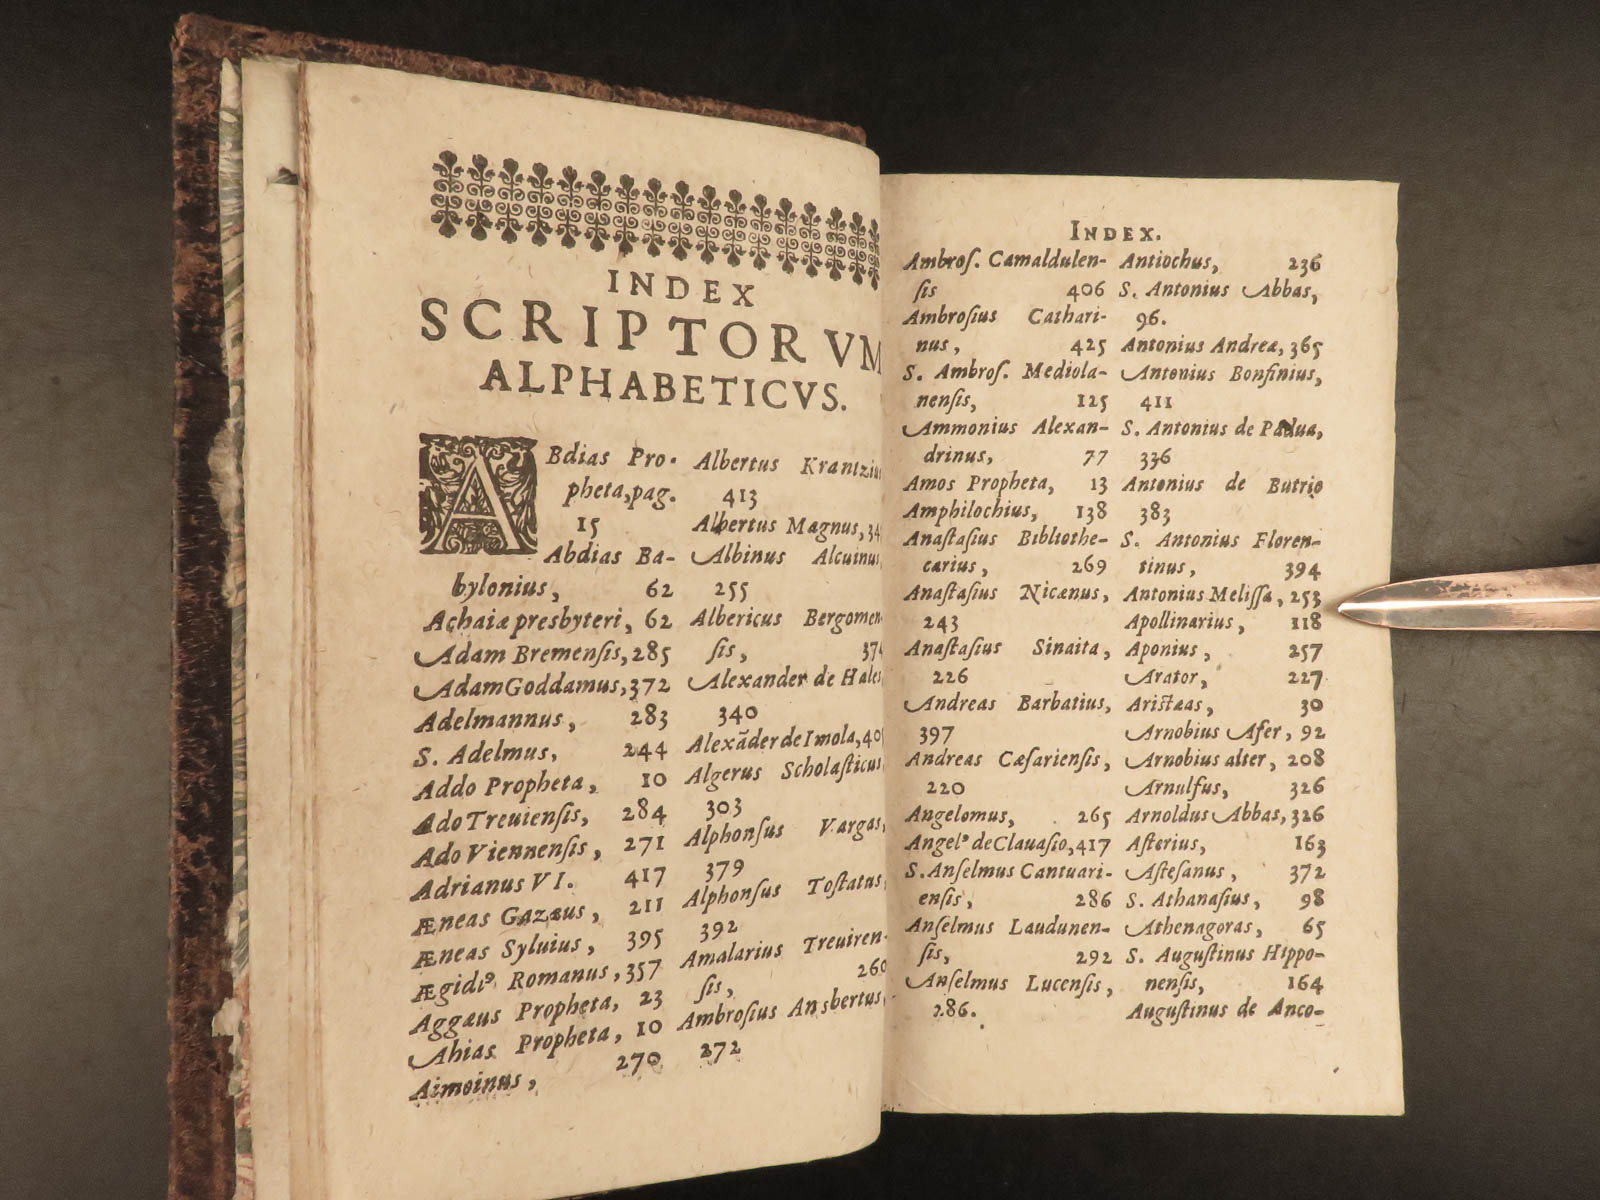 INDEX
SCRIPTORVM
ALPHABETICVS.
ABdias Pro-
pheta, pag.
15
Abdias Ba-
bylonius, 62
Achaiæ presbyteri, 62
Adam Bremenſis, 285
Adam Goddamus, 372
Adelmannus, 283
S. Adelmus, 244
Addo Propheta, 10
Ado Treuienſis, 284
Ado Viennenſis, 271
Adrianus VI. 417
Æneas Gazæus, 211
Æneas Syluius, 395
Ægidiꝰ Romanus, 357
Aggæus Propheta, 23
Ahias Propheta, 10
Aimoinus, 270
Albertus Krantziu
413
Albertus Magnus, 34
Albinus Alcuinus
255
Albericus Bergomen
ſis, 37
Alexander de Hales
340
Alexãder de Imola, 40
Algerus Scholaſticus
303
Alphonſus Vargas,
379
Alphonſus Toſtatus,
392
Amalarius Treuiren-
ſis, 260
Ambroſius Ansbertus,
272
INDEX.
Ambroſ. Camaldulen-
ſis 406
Ambroſius Cathari-
nus, 425
S. Ambroſ. Mediola-
nenſis, 125
Ammonius Alexan-
drinus, 77
Amos Propheta, 13
Amphilochius, 138
Anaſtaſius Bibliothe-
carius, 269
Anaſtaſius Nicænus,
243
Anaſtaſius Sinaita,
226
Andreas Barbatius,
397
Andreas Cæſarienſis,
220
Angelomus, 265
Angelꝰ de Clauaſio, 417
S. Anſelmus Cantuari-
enſis, 286
Anſelmus Laudunen-
ſis, 292
Anſelmus Lucenſis,
286.
Antiochus, 236
S. Antonius Abbas,
96.
Antonius Andreæ, 365
Antonius Bonfinius,
411
S. Antonius de Padua,
336
Antonius de Butrio
383
S. Antonius Floren-
tinus, 394
Antonius Meliſſa, 253
Apollinarius, 118
Aponius, 257
Arator, 227
Ariſtæas, 30
Arnobius Afer, 92
Arnobius alter, 208
Arnulfus, 326
Arnoldus Abbas, 326
Aſterius, 163
Aſteſanus, 372
S. Athanaſius, 98
Athenagoras, 65
S. Auguſtinus Hippo-
nenſis, 164
Auguſtinus de Anco-